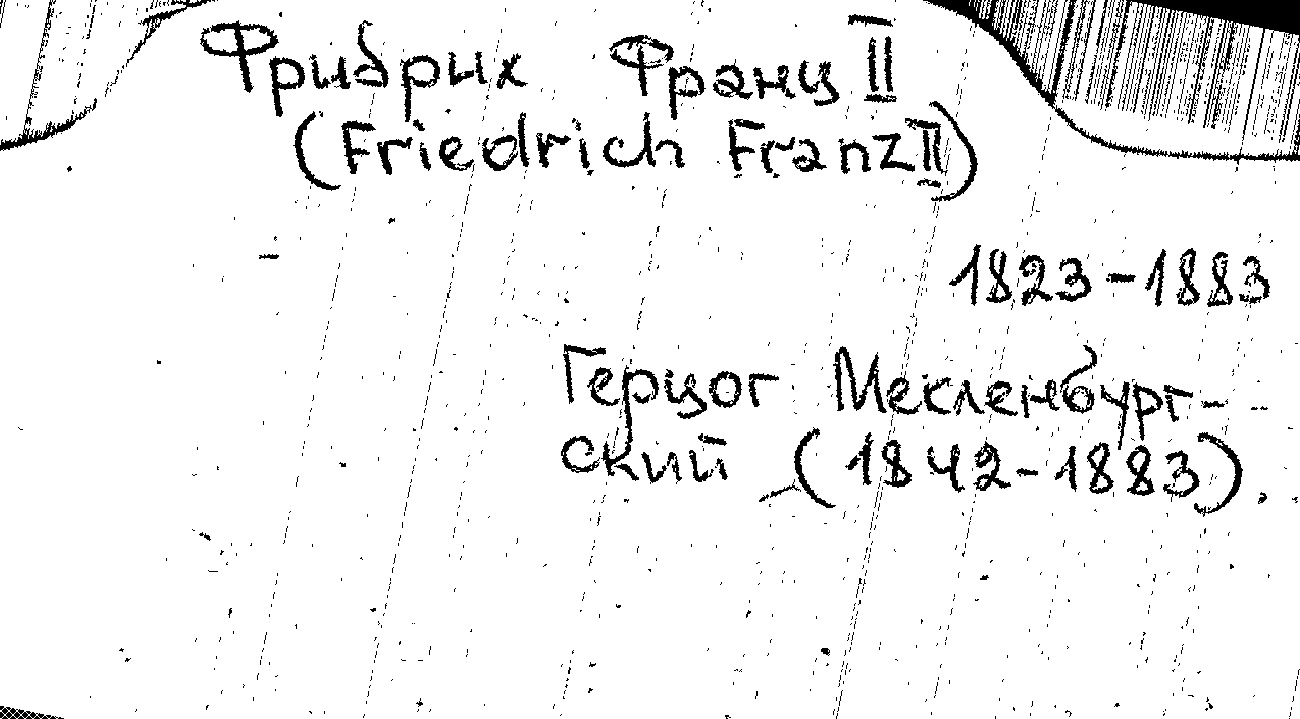 Фридрих Франц II
(Friedrich Franz II)
1823-1883
Герцог Мекленбург-
ский (1842-1883).